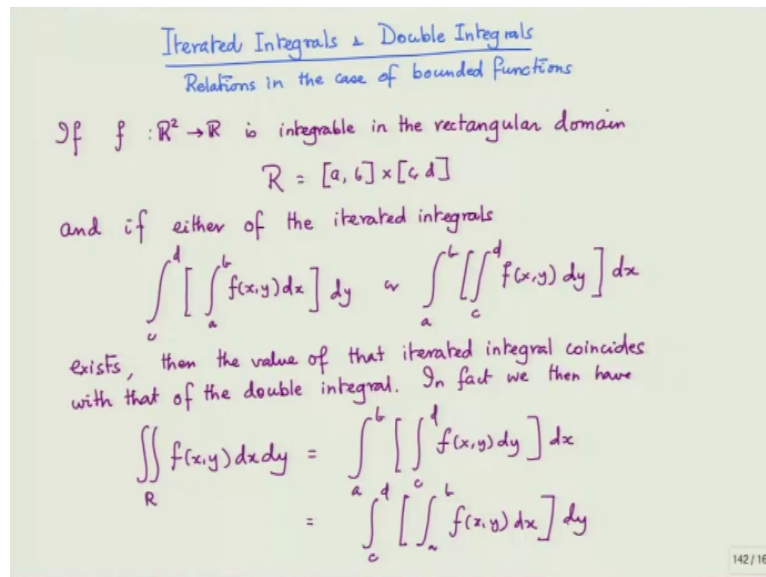 Iterated Integrals & Double Integrals
Relations in the case of bounded functions
If f : R² → R is integrable in the rectangular domain
R = [a, b] × [c, d]
and if either of the iterated integrals
∫_c^d [ ∫_a^b f(x,y) dx ] dy or ∫_a^b [ ∫_c^d f(x,y) dy ] dx
exists, then the value of that iterated integral coincides
with that of the double integral. In fact we then have
∬_R f(x,y) dx dy = ∫_a^b [ ∫_c^d f(x,y) dy ] dx
= ∫_c^d [ ∫_a^b f(x,y) dx ] dy
142 / 16